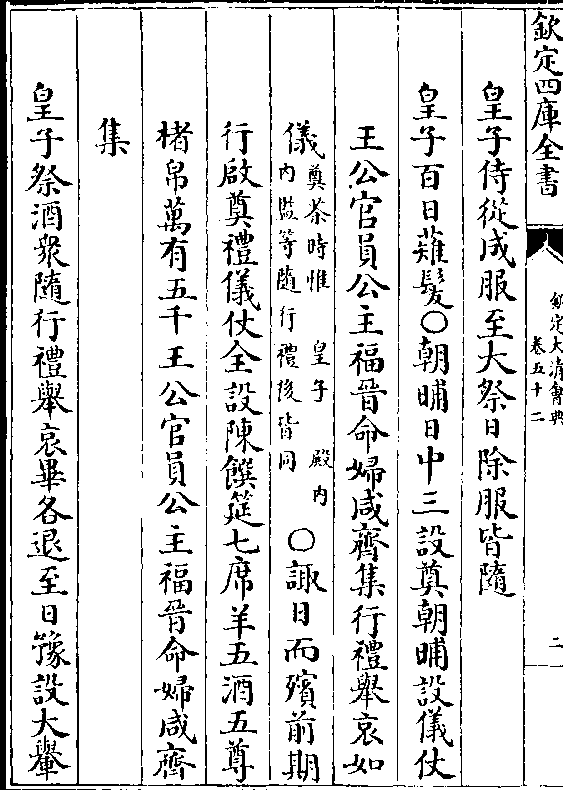 欽定四庫全書
欽定大清會典
卷五十二
二
皇子侍從成服至大祭日除服皆隨
皇子百日薙髮○朝晡日中三設奠朝晡設儀仗
王公官員公主福晉命婦咸齊集行禮舉哀如
儀奠茶時惟 皇子 殿内
内監等隨行禮後皆同
○諏日而殯前期
行啟奠禮儀仗全設陳饌筵七席羊五酒五尊
楮帛萬有五千王公官員公主福晉命婦咸齊
集
皇子祭酒衆隨行禮舉哀畢各退至日豫設大轝